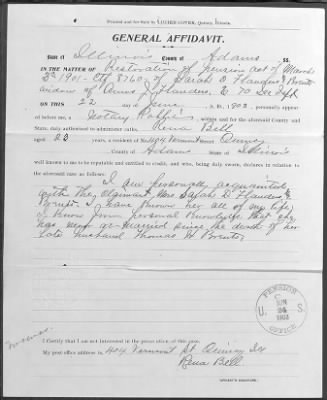 GENERAL AFFIDAVIT.
State of Illinois County of Adams SS.
IN THE MATTER OF Restoration of Pension Act of March
3d 1901 - Ctf 8760 of Sarah D Flanders
widow of Flanders, E 70
ON THIS 22 day of June, A. D., 1903, personally appeared before me, a
Notary Public in and for the aforesaid County and
State, duly authorized to administer oaths, Rena Bell
aged 23 years, a resident of No 404 Vermont Street Quincy
County of Adams State of Illinois
well known to me to be reputable and entitled to credit, and who, being duly sworn, declares in relation to
the aforesaid case as follows:
I am personally acquainted
with the claimant Mrs Sarah D Flanders
I have known her all of my life
I know from personal knowledge that she
has never re-married since the death of her
late husband Thomas H
PENSION
U. S.
JUN
1903
OFFICE
I certify that I am not interested in the prosecution of this case.
My post office address is 404 Vermont St Quincy Ill
Rena Bell.